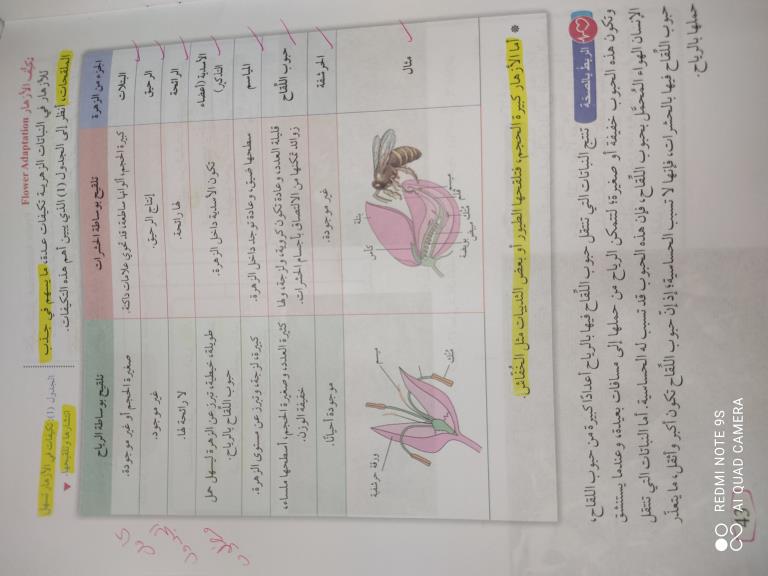 تكيُّف الأزهار Flower Adaptation
للأزهار في النباتات الزهرية تكيفات عدة، ما يسهم في جذب
الملقحات، أنظر إلى الجدول (1) الذي يبين أهم هذه التكيفات.
الجدول (1): تكيفات في الأزهار تسهل
انتشارها وتلقيحها.
الجزء من الزهرة تلقيح بوساطة الحشرات تلقيح بوساطة الرياح
البتلات كبيرة الحجم، ألوانها ساطعة، قد تحوي علامات داكنة. صغيرة الحجم أو غير موجودة.
الرحيق إنتاج الرحيق. غير موجود.
الرائحة لها رائحة. لا رائحة لها.
الأسدية (أعضاء تكون الأسدية داخل الزهرة. طويلة، خيطية، تبرز عن الزهرة ليسهل حمل
التذكير) حبوب اللقاح بالرياح.
المياسم سطحها ضيق، وعادة توجد داخل الزهرة. كبيرة، لزجة، وتبرز عن مستوى الزهرة.
حبوب اللقاح قليلة العدد، وعادة تكون كروية، ولزجة، ولها كثيرة العدد، وصغيرة الحجم، أسطحها ملساء،
زوائد تمكنها من الالتصاق بأجسام الحشرات. خفيفة الوزن.
الحرشفة غير موجودة. موجودة أحيانًا.
مثال
ميسم
قلم
متك
مبيض
بويضة
بتلة
كأس
متك
ميسم
ورقة حرشفية
* أما الأزهار كبيرة الحجم، فتلقحها الطيور أو بعض الثدييات مثل الخُفّاش.
الربط بالصحة
تنتج النباتات التي تنتقل حبوب اللقاح فيها بالرياح أعدادًا كبيرة من حبوب اللقاح،
وتكون هذه الحبوب خفيفة أو صغيرة؛ لتتمكن الرياح من حملها إلى مسافات بعيدة، وعندما يستنشق
الإنسان الهواء المُحمَّل بحبوب اللقاح، فإن هذه الحبوب قد تسبب له الحساسية. أما النباتات التي تنتقل
حبوب اللقاح فيها بالحشرات، فإنها لا تسبب الحساسية؛ إذ إنّ حبوب اللقاح تكون أكبر وأثقل، ما يتعذّر
حملها بالرياح.
43
REDMI NOTE 9S
AI QUAD CAMERA